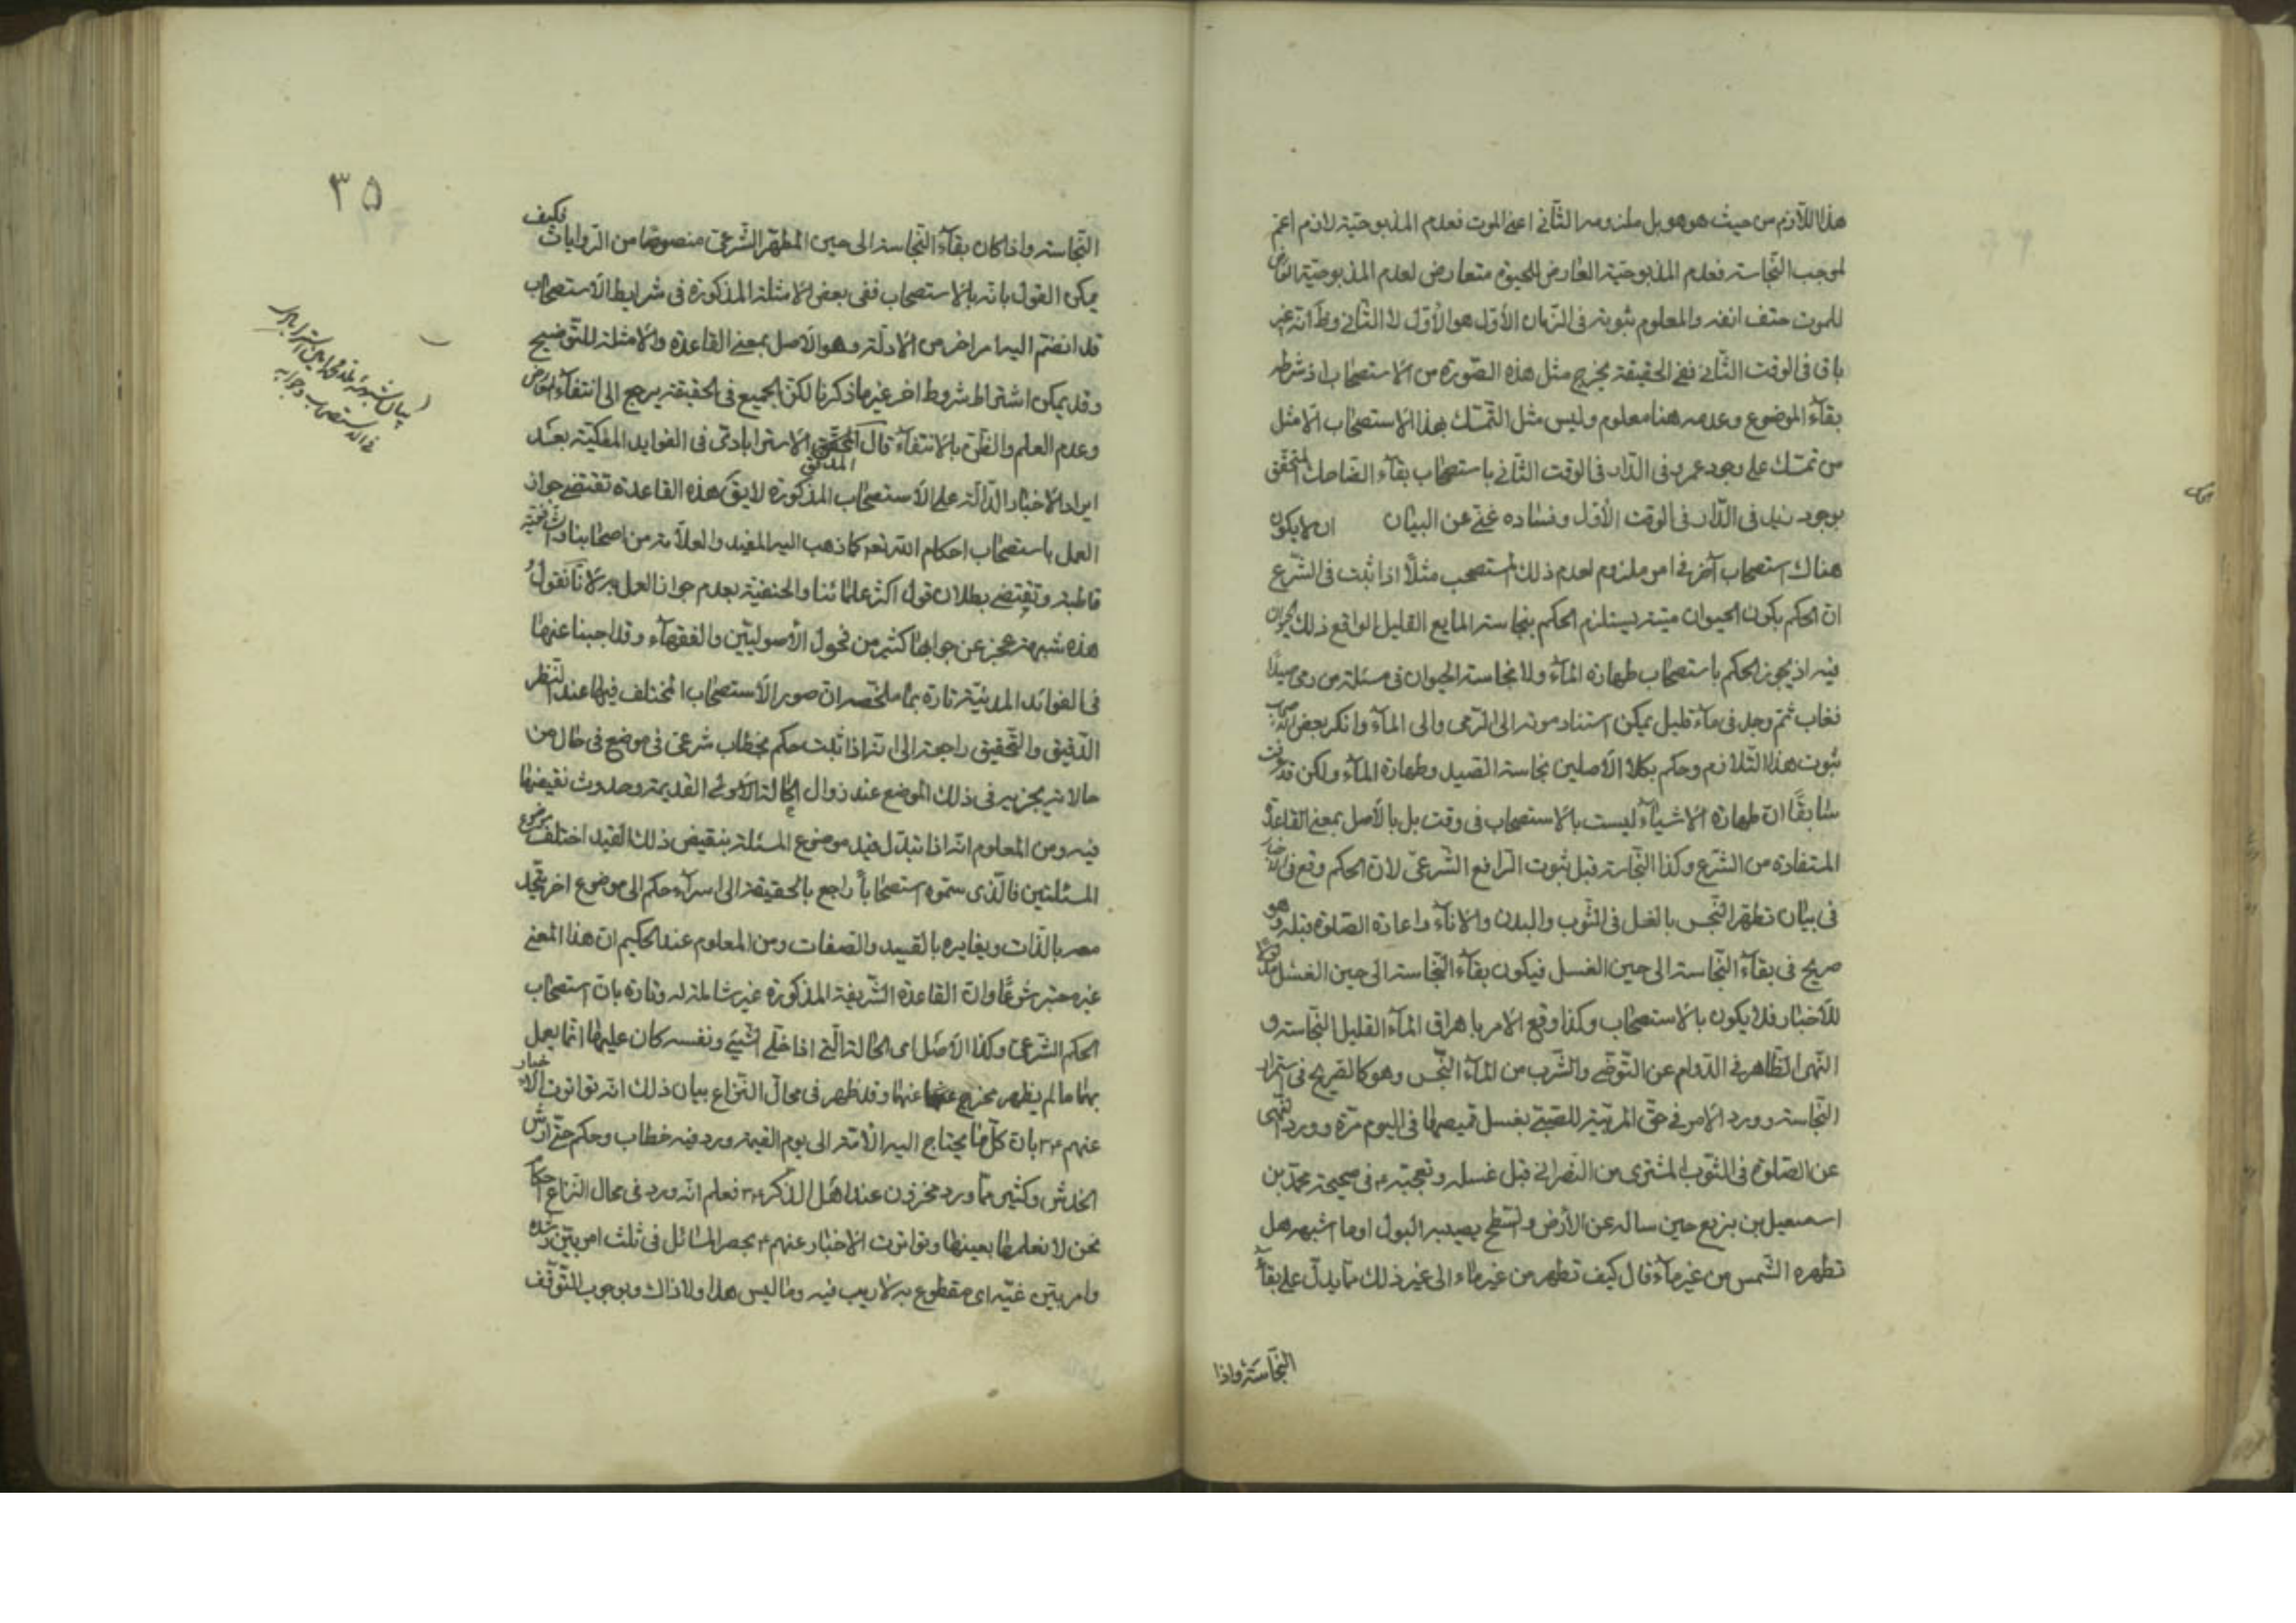 هذا اللازم من حيث هو هو بل ملزومه الثاني اعني الموت فعدم المذبوحية لازم اعم
لموجب النجاسة فعدم المذبوحية العارض للحيوة متعارض لعدم المذبوحية العارض
للموت حتف انفه والمعلوم ثبوته في الزمان الأول هو الأول لا الثاني وظ انه غير
باق في الوقت الثاني ففي الحقيقة يخرج مثل هذه الصورة من الاستصحاب اذ شرطه
بقاء الموضوع وعدمه هنا معلوم وليس مثل التمسك بهذا الاستصحاب الا مثل
من تمسك على وجود عمرو في الدار في الوقت الثاني باستصحاب بقاء الضاحك المتحقق
بوجود زيد في الدار في الوقت الأول وفساده غني عن البيان ان لا يكون
هناك استصحاب آخر في امر ملزوم لعدم ذلك المستصحب مثلا اذا ثبت في الشرع
ان الحكم بكون الحيوان ميتة يستلزم الحكم بنجاسة المايع القليل الواقع ذلك الحيوان
فيه اذ يجوز الحكم باستصحاب طهارة الماء ولا نجاسة الحيوان في مسئلة من رمى صيدا
فغاب ثم وجد في ماء قليل يمكن استناد موته الى الرمى والى الماء وانكر بعض الاصحاب
ثبوت هذا التلازم وحكم بكلا الأصلين نجاسة الصيد وطهارة الماء ولكن قد عرفت
سابقا ان طهارة الاشياء ليست بالاستصحاب في وقت بل بالأصل بمعنى القاعدة
المستفادة من الشرع وكذا النجاسة قبل ثبوت الرافع الشرعي لان الحكم وقع في الاخبار
في بيان تطهر النجس بالغسل في الثوب والبدن والاناء واعادة الصلوة قبله وهو
صريح في بقاء النجاسة الى حين الغسل فيكون بقاء النجاسة الى حين الغسل مدلولا
للأخبار فلا يكون بالاستصحاب وكذا وقع الامر باهراق الماء القليل النجاسة و
النهى الظاهر في الدوام عن التوضي والشرب من الماء النجس وهو كالصريح في استمرار
النجاسة وورد الامر في حق المربية للصبي بغسل قميصها في اليوم مرة وورد النهى
عن الصلوة في الثوب المشترى من النصراني قبل غسله وتعجبه ع في صحيحة محمد بن
اسمعيل بن بزيع حين ساله عن الأرض والسطح يصيبه البول او ما اشبهه هل
تطهره الشمس من غير ماء قال كيف تطهر من غير ماء الى غير ذلك مما يدل على بقاء
النجاسة واذا
٣٥
النجاسة واذا كان بقاء النجاسة الى حين المطهر الشرعي منصوصا من الروايات فكيف
يمكن القول بانه بالاستصحاب ففي بعض الامثلة المذكورة في شرايط الاستصحاب
قد انضم اليه امر اخر من الادلة وهو الاصل بمعنى القاعدة والامثلة للتوضيح
وقد يمكن اشتراط شروط اخر غير ما ذكرنا لكن الجميع في الحقيقة يرجع الى انتفاء المعارض
وعدم العلم والظن بالانتفاء قال المحقق المدقق الاسترابادي في الفوايد المكية بعد
ايراد الاخبار الدالة على الاستصحاب المذكورة لا يق هذه القاعدة تقتضي جواز
العمل باستصحاب احكام الله تعم كما ذهب اليه المفيد والعلامة من اصحابنا والشافعية
قاطبة وتقتضي بطلان قول اكثر علمائنا والحنفية بعدم جواز العمل به لانا نقول
هذه شبهة عجز عن جوابها كثير من فحول الأصوليين والفقهاء وقد اجبنا عنها
في الفوائد المدنية تارة بما ملخصه ان صور الاستصحاب المختلف فيها عند النظر
الدقيق والتحقيق راجعة الى انه اذا ثبت حكم بخطاب شرعي في موضع في حال من
حالاته يجريه في ذلك الموضع عند زوال الحالة القديمة وحدوث نقيضها
فيه ومن المعلوم انه اذا تبدل قيد موضوع المسئلة بنقيض ذلك القيد اختلف موضوع
المسئلتين فالذي سموه استصحابا راجع بالحقيقة الى اسراء حكم الى موضوع اخر يتحد
معه بالذات ويغايره بالقييد والصفات ومن المعلوم عند الحكيم ان هذا المعنى
غير معتبر شرعا وان القاعدة الشريفة المذكورة غير شاملة له وتارة بان استصحاب
الحكم الشرعي وكذا الأصل اى الحالة التي اذا خلى الشيء ونفسه كان عليها انما يعمل
بهما ما لم يظهر مخرج عنهما وقد ظهر في محال النزاع بيان ذلك انه تواترت الاخبار
عنهم ع بان كل ما يحتاج اليه الامة الى يوم القيمة ورد فيه خطاب وحكم حتى ارش
الخدش وكثير مما ورد مخزون عند اهل الذكر ع فعلم انه ورد في محال النزاع احكام
نحن لا نعلمها بعينها وتواترت الاخبار عنهم ع بحصر المسائل في ثلث امر بين رشده
وامر بين غيه اى مقطوع به لا ريب فيه وما ليس هذا ولا ذاك وبوجوب التوقف